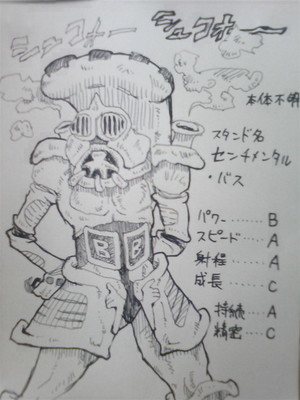 シュコォー
シュコォー
本体不明
スタンド名
センチメンタル
・バス
パワー……B
スピード…A
射程……A
成長……C
持続…A
精密…C
B B